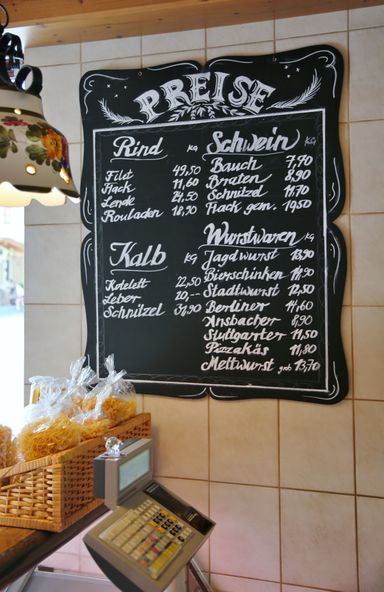 PREISE
Rind KG
Filet 49,50
Hack 11,60
Lende 24,50
Rouladen 18,90
Kalb KG
Kotelett 22,50
Leber 20,--
Schnitzel 37,90
Schwein KG
Bauch 7,90
Braten 8,90
Schnitzel 11,70
Hack gem. 10,50
Wurstwaren KG
Jagdwurst 13,90
Bierschinken 14,90
Stadtwurst 12,50
Berliner 14,60
Ansbacher 8,90
Stuttgarter 11,50
Pizzakäs 11,80
Mettwurst grob 13,70